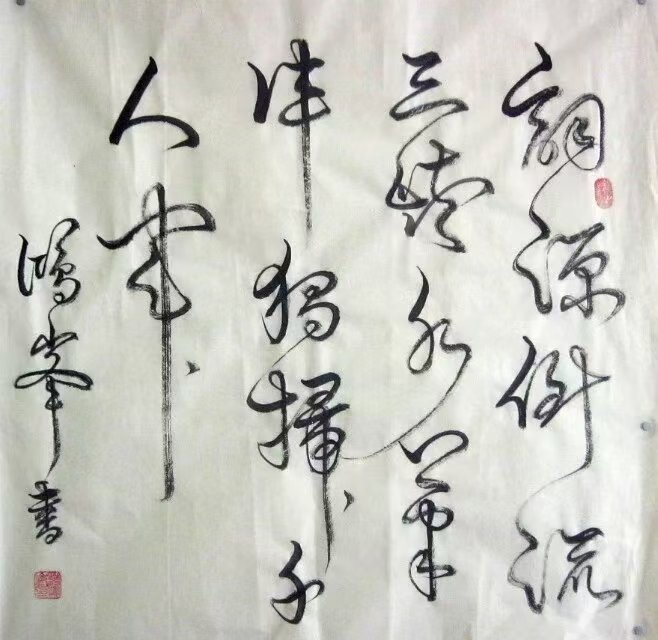 詞源倒流
三峽水筆
陣獨掃千
人軍
鴻峯書